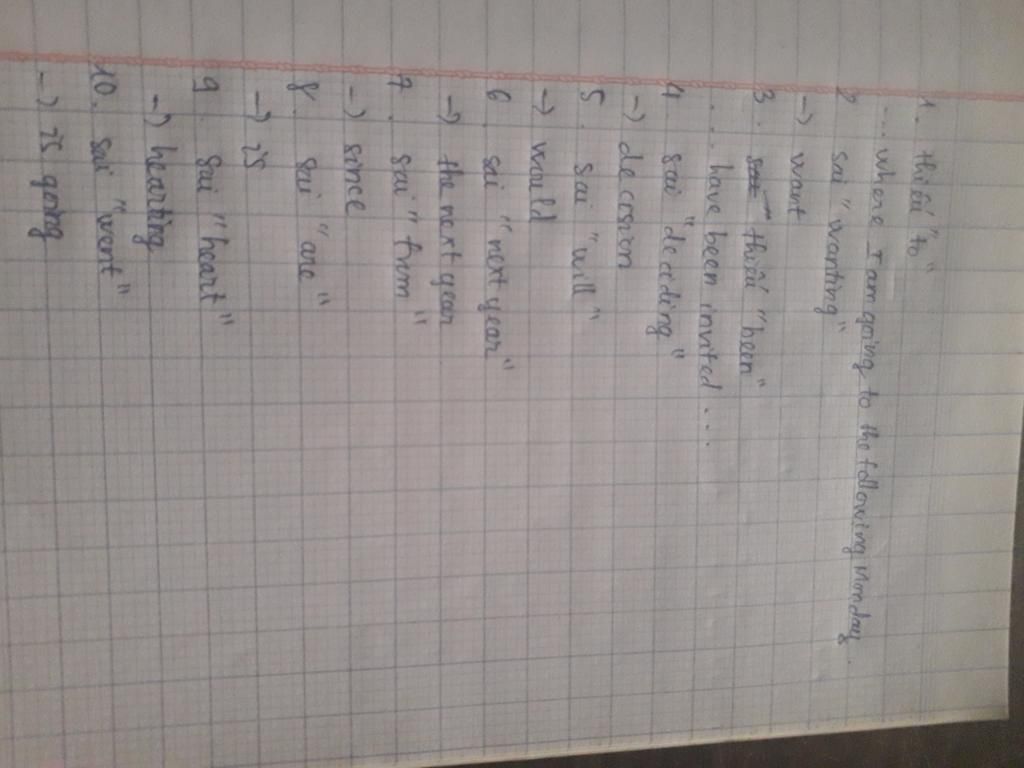 1. thiếu "to"
... where I am going to the following Monday.
2 sai "wanting"
-> want
3. thiếu "been"
... have been invited ....
4. sai "deciding"
-> decision
5. sai "will"
-> would
6 sai "next year"
-> the next year
7. sai "from"
-> since
8. sai "are"
-> is
9. sai "heart"
-> hearting
10. sai "went"
-> is going